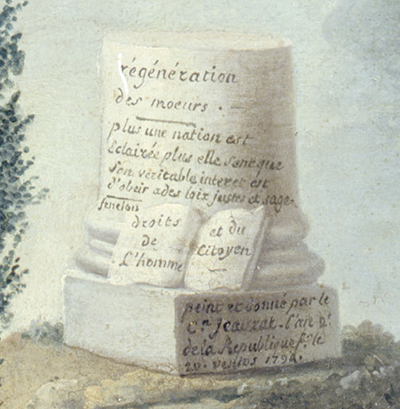 régénération
des moeurs.
plus une nation est
Eclairée plus elle sent que
son véritable interet est
d'obeir a des loix justes et sage.
fenelon
droits
de
L'homme
et du
Citoyen
peint et donné par le
Jeaurat. l'an
de la Republique f. le
20. 1794.